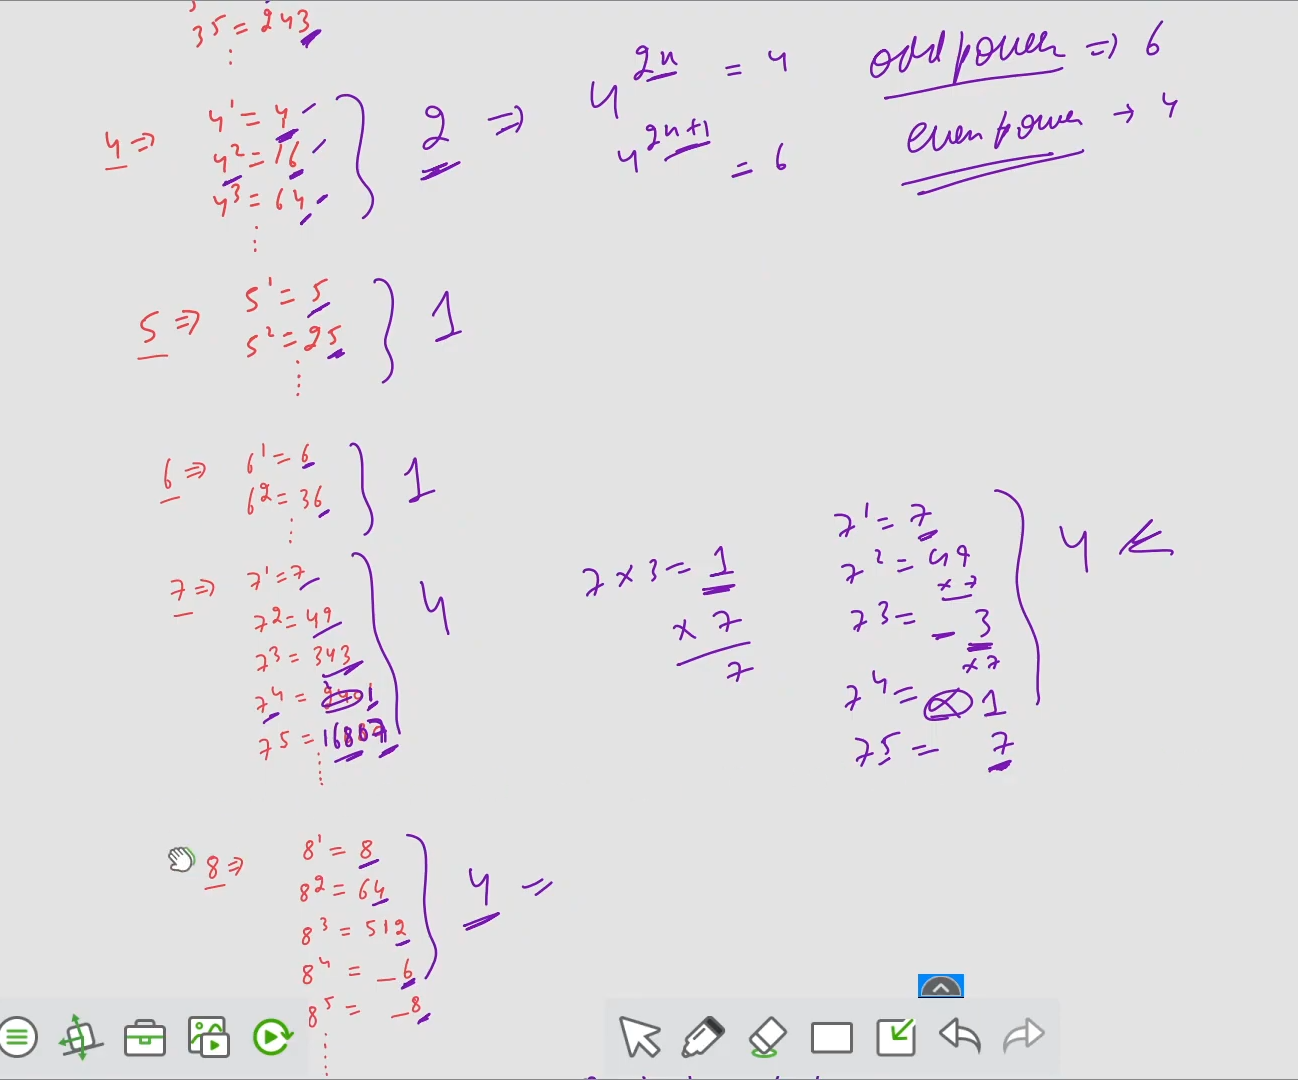 3⁵ = 243
4 ⇒ 4¹ = 4
4² = 16
4³ = 64
2 ⇒
4²ⁿ = 4
4²ⁿ⁺¹ = 6
odd power ⇒ 6
even power → 4
5 ⇒ 5¹ = 5
5² = 25
1
6 ⇒ 6¹ = 6
6² = 36
1
7 ⇒ 7¹ = 7
7² = 49
7³ = 343
7⁴ = 1
7⁵ = 16807
4
7 × 3 = 1
× 7
7
7¹ = 7
7² = 49
× 7
7³ = _ 3
× 7
7⁴ = 1
7⁵ = 7
4 ⇐
8 ⇒ 8¹ = 8
8² = 64
8³ = 512
8⁴ = _6
8⁵ = _8
4 =